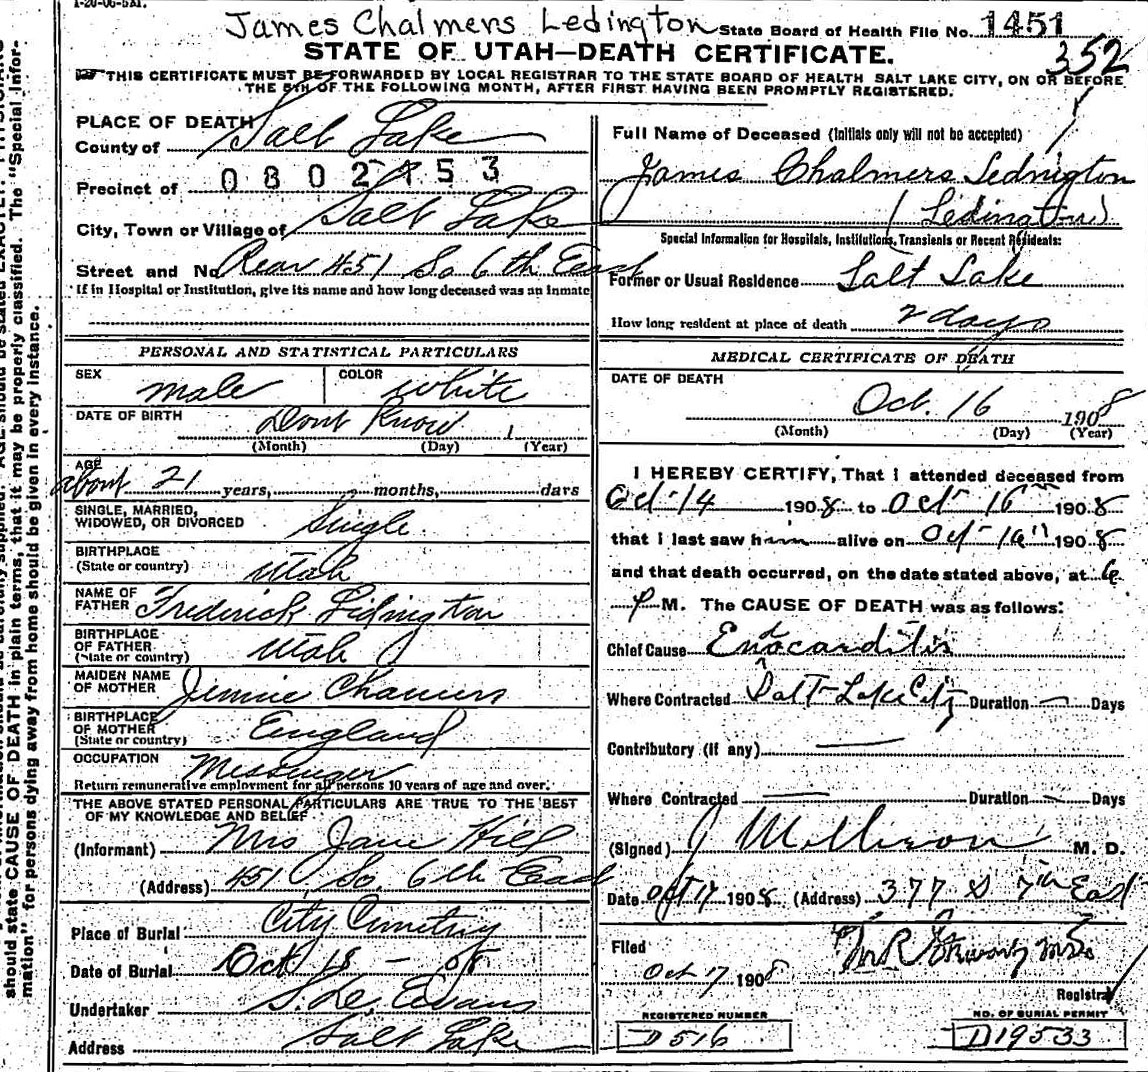 1-20-06-5M.
James Chalmers Ledington State Board of Health File No. 1451
352
STATE OF UTAH—DEATH CERTIFICATE.
THIS CERTIFICATE MUST BE FORWARDED BY LOCAL REGISTRAR TO THE STATE BOARD OF HEALTH SALT LAKE CITY, ON OR BEFORE
THE 5TH OF THE FOLLOWING MONTH, AFTER FIRST HAVING BEEN PROMPTLY REGISTERED.
PLACE OF DEATH
County of Salt Lake
Precinct of 0802 153
City, Town or Village of Salt Lake
Street and No. Rear 451 So 6th East
If in Hospital or Institution, give its name and how long deceased was an inmate
Full Name of Deceased (Initials only will not be accepted)
James Chalmers Lednigton
(Ledington)
Special Information for Hospitals, Institutions, Transients or Recent Residents:
Former or Usual Residence Salt Lake
How long resident at place of death 2 days
PERSONAL AND STATISTICAL PARTICULARS
SEX male COLOR white
DATE OF BIRTH Dont Know 1
(Month) (Day) (Year)
AGE about 21 years, months, days
SINGLE, MARRIED,
WIDOWED, OR DIVORCED Single
BIRTHPLACE
(State or country) Utah
NAME OF
FATHER Frederick Lidington
BIRTHPLACE
OF FATHER
(State or country) Utah
MAIDEN NAME
OF MOTHER Jennie Chamers
BIRTHPLACE
OF MOTHER
(State or country) England
OCCUPATION Messenger
Return remunerative employment for all persons 10 years of age and over.
THE ABOVE STATED PERSONAL PARTICULARS ARE TRUE TO THE BEST
OF MY KNOWLEDGE AND BELIEF
(Informant) Mrs Jane Hill
(Address) 451 So. 6th East
Place of Burial City Cemetery
Date of Burial Oct 18 - 08
Undertaker S. D. Evans
Address Salt Lake
MEDICAL CERTIFICATE OF DEATH
DATE OF DEATH
Oct. 16 1908
(Month) (Day) (Year)
I HEREBY CERTIFY, That I attended deceased from
Oct-14 1908 to Oct 16th 1908
that I last saw him alive on Oct-16th 1908
and that death occurred, on the date stated above, at 6
P M. The CAUSE OF DEATH was as follows:
Chief Cause Endocarditis
Where Contracted Salt-Lake City Duration — Days
Contributory (if any) —
Where Contracted — Duration — Days
(Signed) J Mellison M. D.
Date Oct 17 1908 (Address) 377 S 7th East
Filed
Oct 17 1908
Registrar
REGISTERED NUMBER
D516
NO. OF BURIAL PERMIT
D19533
should state CAUSE OF DEATH in plain terms, that it may be properly classified. The "Special Infor-
mation" for persons dying away from home should be given in every instance.